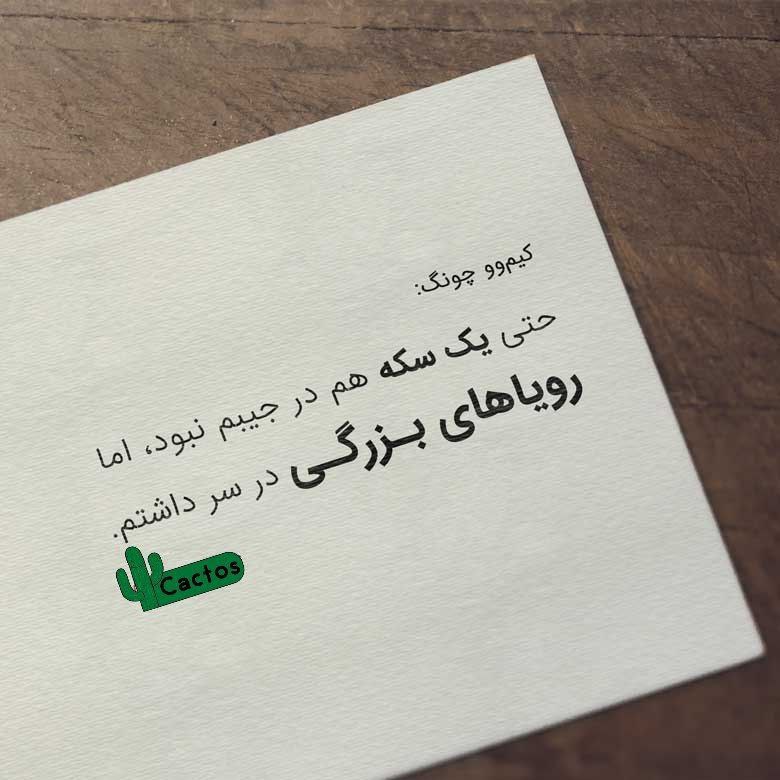 کیم‌وو چونگ:
حتی یک سکه هم در جیبم نبود، اما
رویاهای بزرگی در سر داشتم.
Cactos